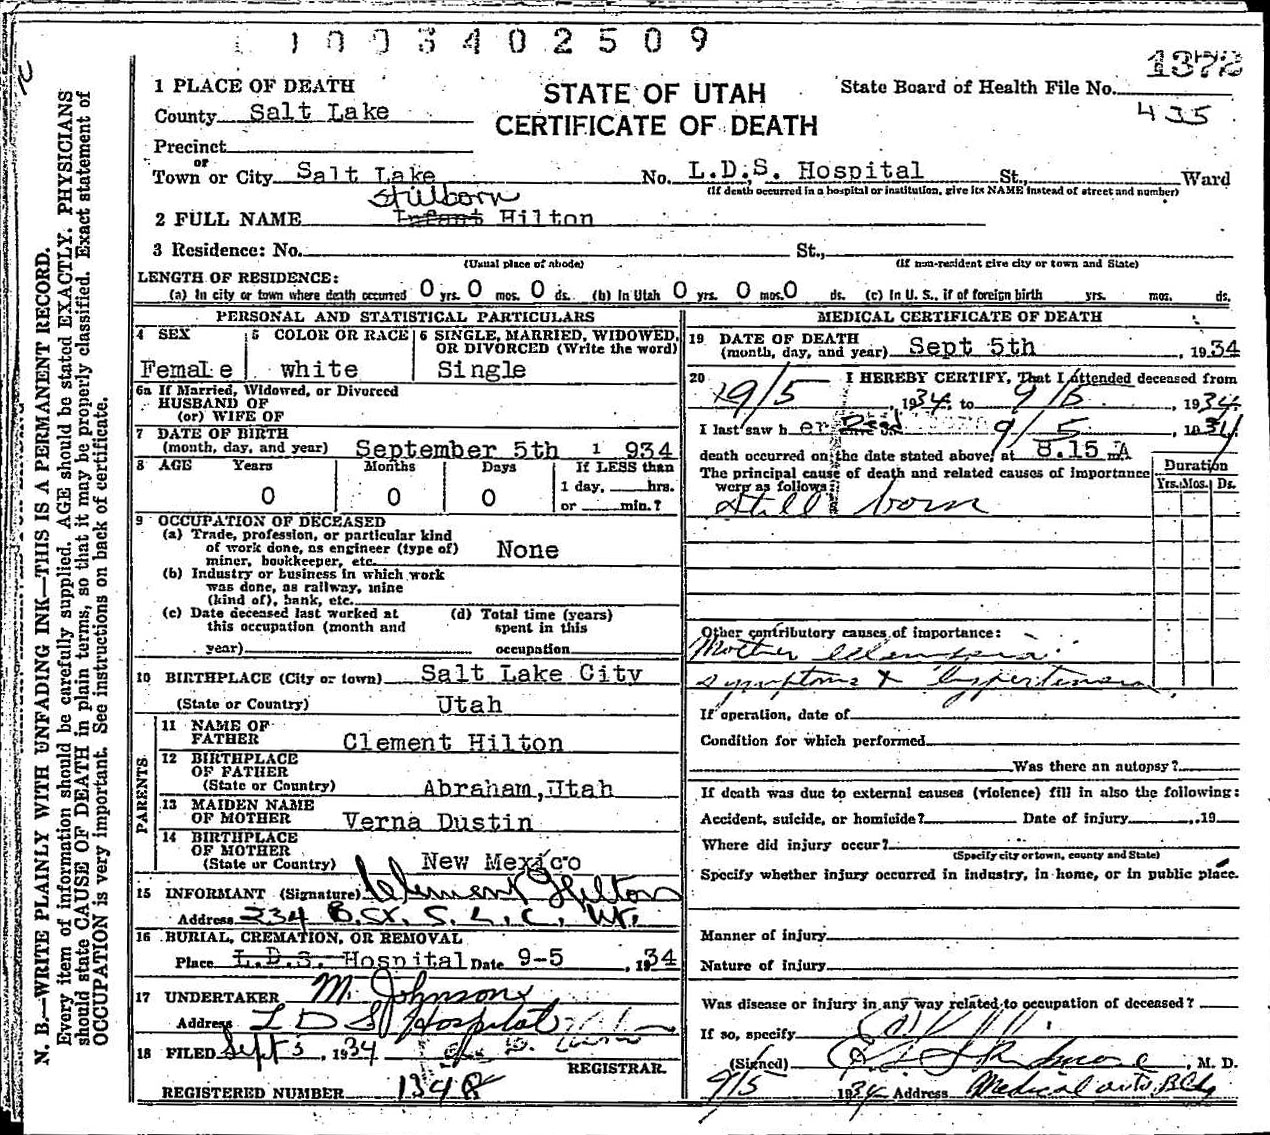 1003402509
1372
1 PLACE OF DEATH
STATE OF UTAH
State Board of Health File No.
County Salt Lake
CERTIFICATE OF DEATH
435
Precinct
or
Town or City Salt Lake No. L.D.S. Hospital St., Ward
(If death occurred in a hospital or institution, give its NAME instead of street and number)
Stillborn
2 FULL NAME Infant Hilton
3 Residence: No. St.,
(Usual place of abode) (If non-resident give city or town and State)
LENGTH OF RESIDENCE:
(a) In city or town where death occurred 0 yrs. 0 mos. 0 ds. (b) In Utah 0 yrs. 0 mos. 0 ds. (c) In U. S., if of foreign birth yrs. mos. ds.
PERSONAL AND STATISTICAL PARTICULARS
4 SEX 5 COLOR OR RACE 6 SINGLE, MARRIED, WIDOWED, OR DIVORCED (Write the word)
Female white Single
6a If Married, Widowed, or Divorced
HUSBAND OF
(or) WIFE OF
7 DATE OF BIRTH
(month, day, and year) September 5th 1 934
8 AGE Years Months Days If LESS than
0 0 0 1 day, hrs.
or min.?
9 OCCUPATION OF DECEASED
(a) Trade, profession, or particular kind
of work done, as engineer (type of) None
miner, bookkeeper, etc.
(b) Industry or business in which work
was done, as railway, mine
(kind of), bank, etc.
(c) Date deceased last worked at (d) Total time (years)
this occupation (month and spent in this
year) occupation
10 BIRTHPLACE (City or town) Salt Lake City
(State or Country) Utah
PARENTS
11 NAME OF
FATHER Clement Hilton
12 BIRTHPLACE
OF FATHER
(State or Country) Abraham, Utah
13 MAIDEN NAME
OF MOTHER Verna Dustin
14 BIRTHPLACE
OF MOTHER
(State or Country) New Mexico
15 INFORMANT (Signature) Clement Hilton
Address 234 B. St. S. L. C. Ut.
16 BURIAL, CREMATION, OR REMOVAL
Place L.D.S. Hospital Date 9-5 , 1934
17 UNDERTAKER M. Johnson
Address L D S Hospital
18 FILED Sept 5 , 1934
REGISTRAR.
REGISTERED NUMBER 1348
MEDICAL CERTIFICATE OF DEATH
19 DATE OF DEATH
(month, day, and year) Sept 5th , 1934
20 I HEREBY CERTIFY, That I attended deceased from
9/5 , 1934, to 9/5 , 1934.
I last saw her 9/5 , 1934
death occurred on the date stated above, at 8.15 A m
The principal cause of death and related causes of importance
were as follows: Duration
Yrs. Mos. Ds.
Still born
Other contributory causes of importance:
Mother
symptoms & hypertension
If operation, date of
Condition for which performed
Was there an autopsy?
If death was due to external causes (violence) fill in also the following:
Accident, suicide, or homicide? Date of injury , 19
Where did injury occur?
(Specify city or town, county and State)
Specify whether injury occurred in industry, in home, or in public place.
Manner of injury
Nature of injury
Was disease or injury in any way related to occupation of deceased?
If so, specify
(Signed) , M. D.
9/5 1934 Address Medical arts Bldg
N. B.—WRITE PLAINLY WITH UNFADING INK—THIS IS A PERMANENT RECORD.
Every item of information should be carefully supplied. AGE should be stated EXACTLY. PHYSICIANS
should state CAUSE OF DEATH in plain terms, so that it may be properly classified. Exact statement of
OCCUPATION is very important. See instructions on back of certificate.